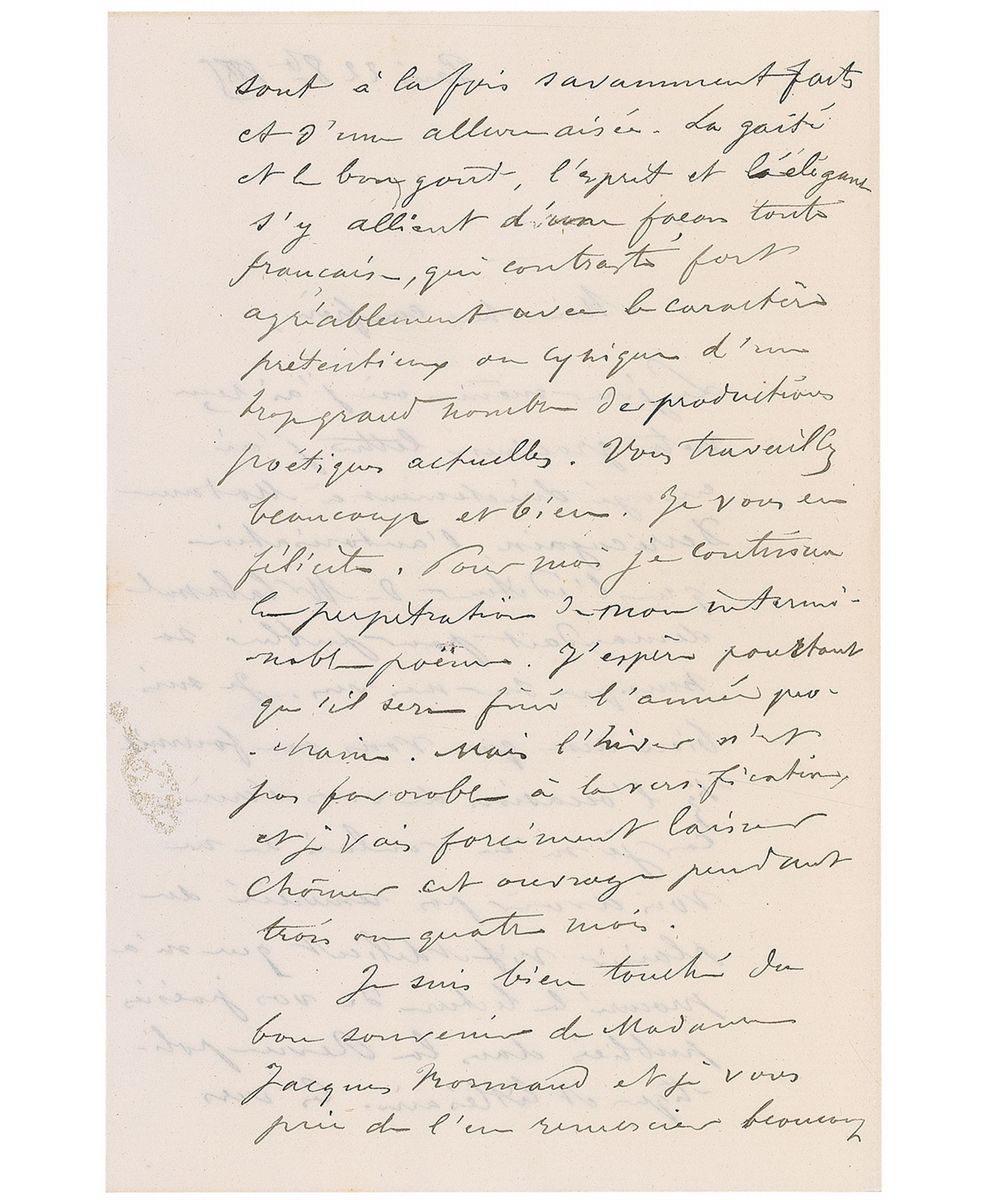 sont à la fois savamment faits
et d'une allure aisée. La gaité
et le bon goût, l'esprit et l'élégance
s'y allient d'une façon toute
française, qui contraste fort
agréablement avec le caractère
prétentieux ou cynique d'un
trop grand nombre de productions
poétiques actuelles. Vous travaillez
beaucoup et bien. Je vous en
félicite. Pour moi je continue
la perpétration de mon intermi-
nable poëme. J'espère pourtant
qu'il sera fini l'année pro-
-chaine. Mais l'hiver n'est
pas favorable à la versification,
et je vais forcément laisser
chômer cet ouvrage pendant
trois ou quatre mois.
Je suis bien touché du
bon souvenir de Madame
Jacques Normand et je vous
prie de l'en remercier beaucoup